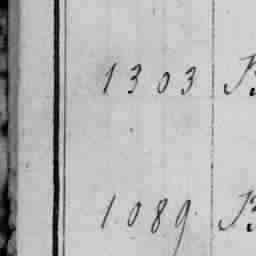 1303 B
1089. B